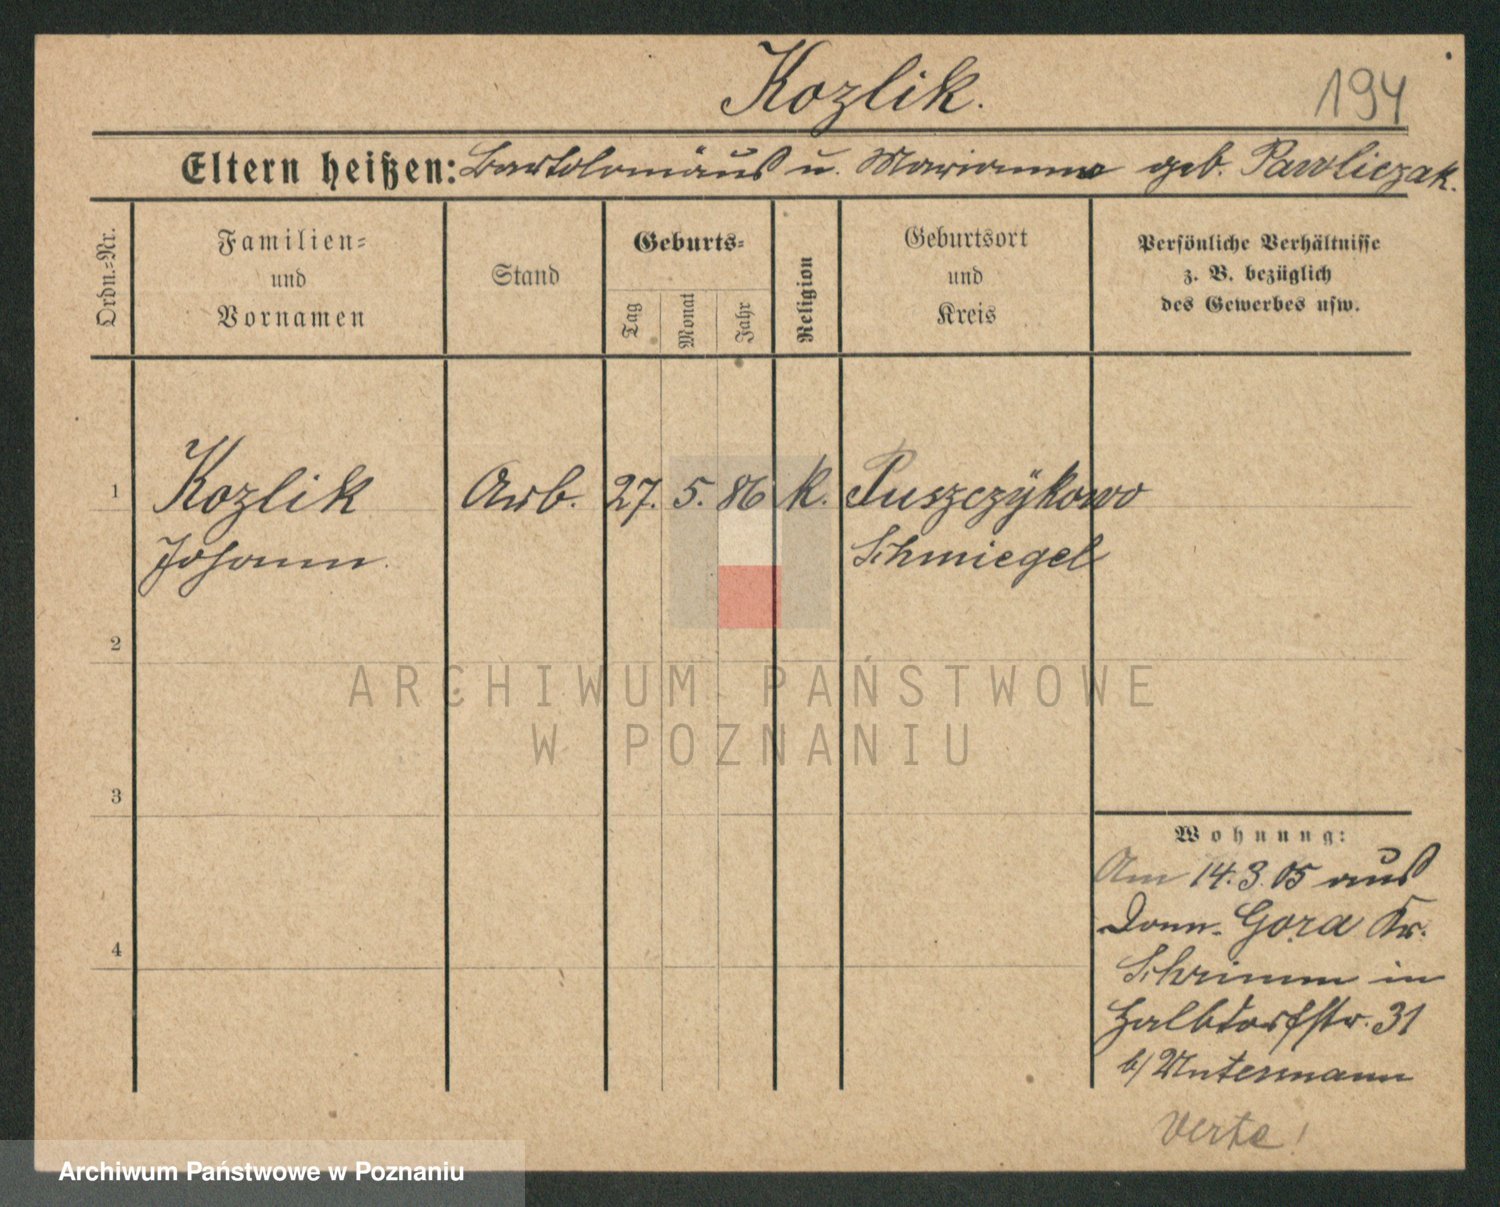 Kozlik.
194
Eltern heißen: Bartolomäus u. Marianna geb. Pawliczak.
Ordn.=Nr.
Familien=
und
Vornamen
Stand
Geburts=
Tag
Monat
Jahr
Religion
Geburtsort
und
Kreis
Persönliche Verhältnisse
z. B. bezüglich
des Gewerbes usw.
1 Kozlik Arb. 27. 5. 86 k. Puszczÿkowo
Johann. Schmiegel
2
ARCHIWUM PAŃSTWOWE
W POZNANIU
3
Wohnung:
Am 14.3.05 aus
Dom. Gora Kr.
4
Schrimm in
Halbdorfstr. 31
b/ Untermann
Verte!
Archiwum Państwowe w Poznaniu